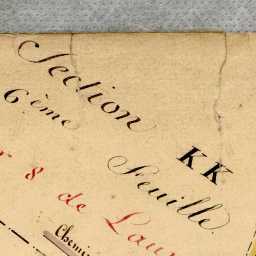 Section KK
6ème Feuille.
8 de
Chemin